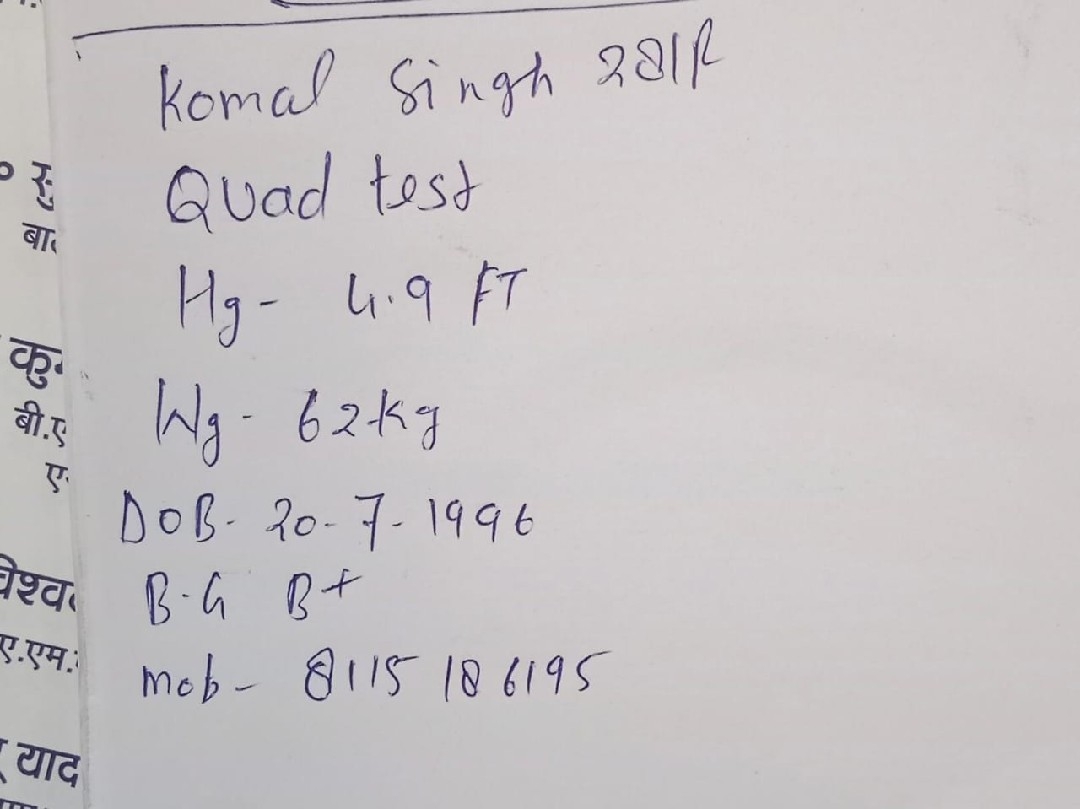 Komal Singh 28/F
Quad test
Hg- 4.9 FT
Wg- 62kg
DOB- 20-7-1996
B.G B+
mob- 8115 186195
सु
बा
कु
बी.ए
ए
वेश्व
ए.एम.
याद